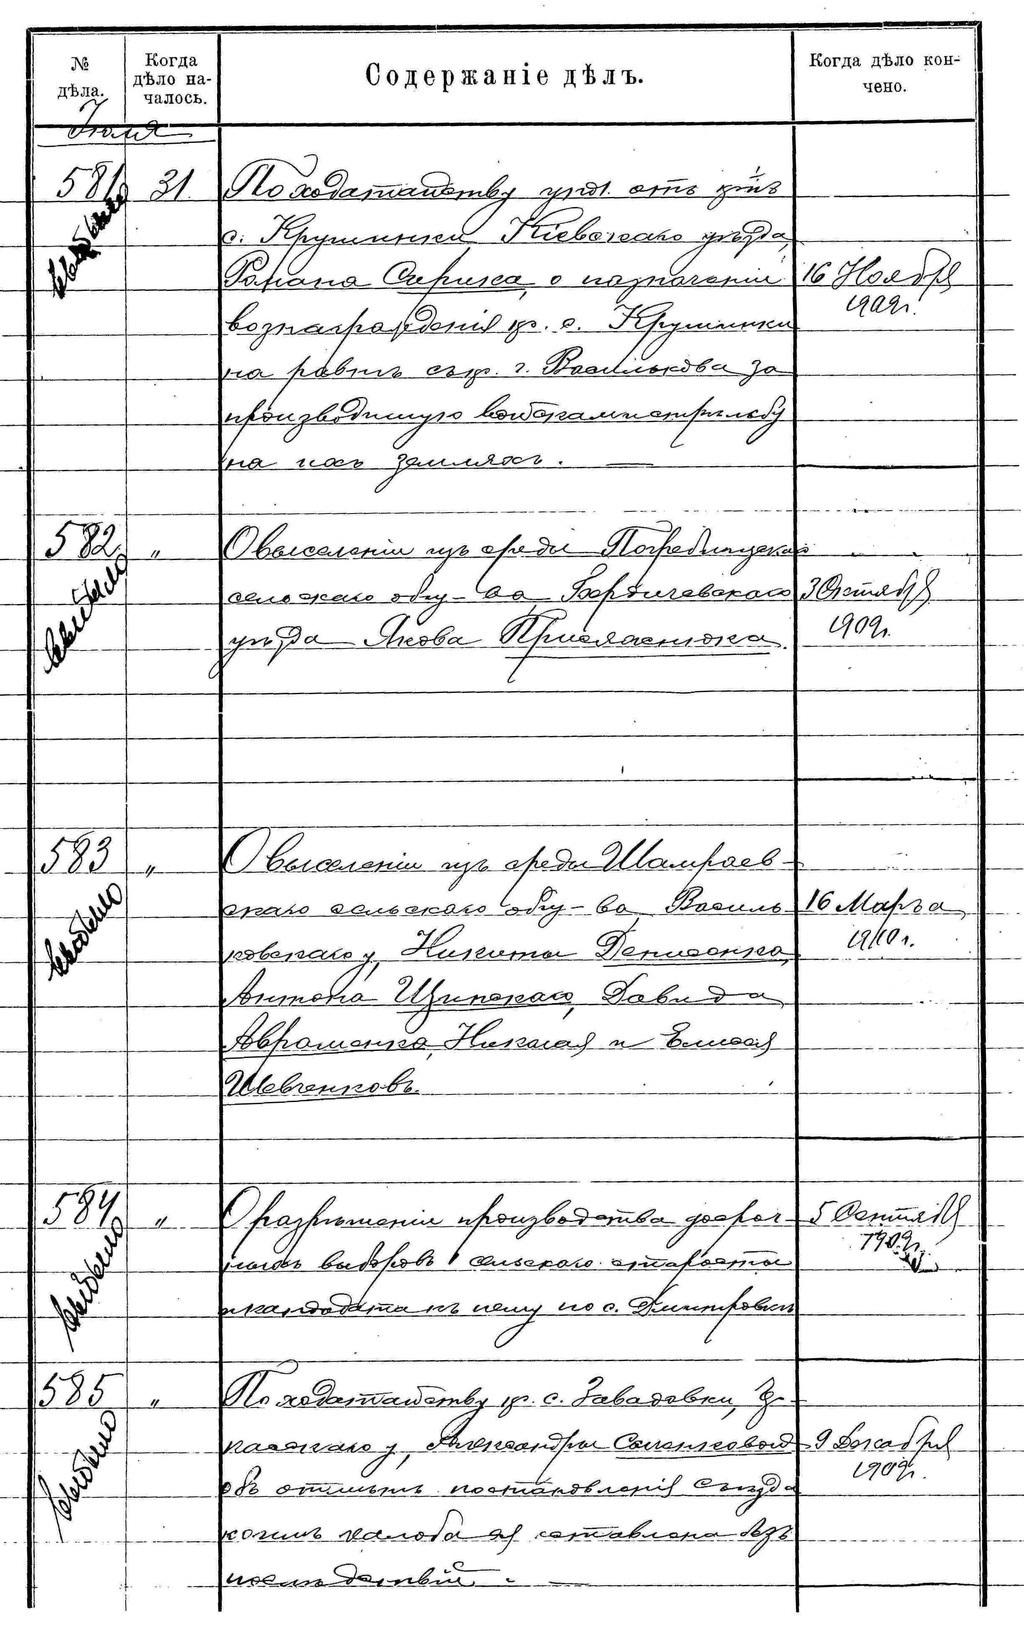 № дѣла.
Когда дѣло началось.
Содержаніе дѣлъ.
Когда дѣло кончено.
Іюля
581
31
По ходатайству упол. отъ кр-нъ
с. Крушинки, Кіевскаго уѣзда,
Романа Скрипка, о назначеніи
16 Ноября
вознагражденія кр. с. Крушинки
1909г.
на равнѣ съ кр. г. Василькова за
производимую войсками стрѣльбу
на ихъ земляхъ.
Выбыло
582
"
О выселеніи изъ среды Погребищскаго
сельскаго общ-ва, Бердичевскаго
3 Октября
уѣзда Якова Присяжнюка.
1909г.
Выбыло
583
"
О выселеніи изъ среды Шамраев-
скаго сельскаго общ-ва, Василь
16 Марта
ковскаго у, Никиты Денисенко,
1910г.
Антона Щипскаго, Давида
Авраменко, Николая и Елисея
Шевченковъ.
Выбыло
584
"
О разрѣшеніи производства досроч-
5 Сентября
ныхъ выборовъ сельскаго старосты
1909г.
и кандидата къ нему по с. Дмитровкѣ
Выбыло
585
"
По ходатайству кр. с. Завадовки,
у, Александры Семенковой
9 Декабря
объ отмѣнѣ постановленія Съѣзда
1909г.
коимъ жалоба ея оставлена безъ
послѣдствій.
Выбыло